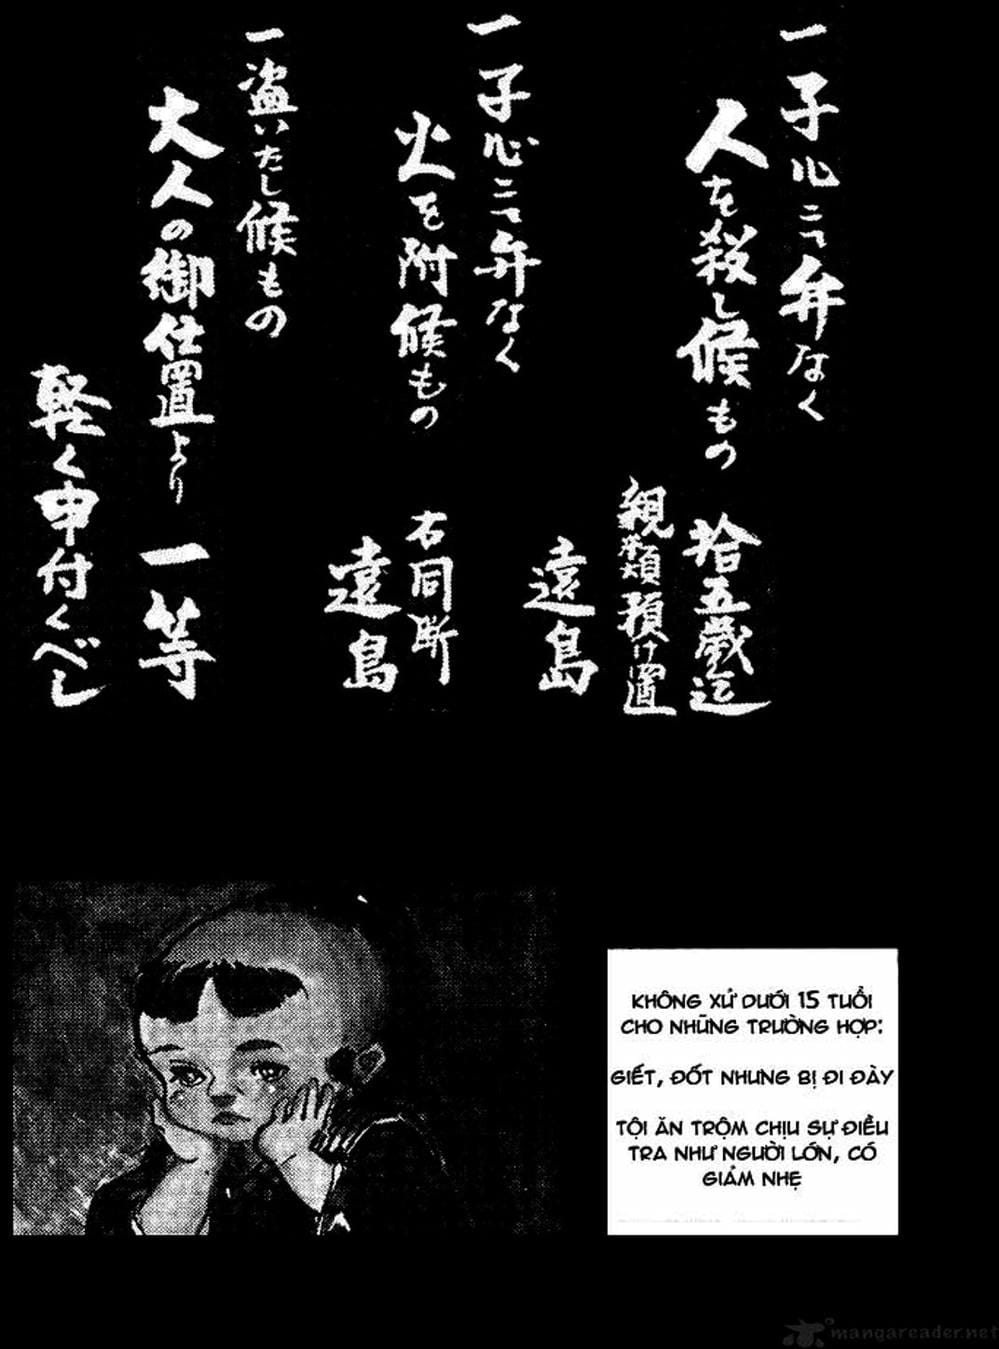 一 子心ニて弁なく
人を殺し候もの
拾五歳迄
親類預け置
遠島
一 子心ニて弁なく
火を附候もの
右同断
遠島
一 盗いたし候もの
大人の御仕置より一等
軽く申付くべし
KHÔNG XỬ DƯỚI 15 TUỔI
CHO NHỮNG TRƯỜNG HỢP:
GIẾT, ĐỐT NHƯNG BỊ ĐI ĐÀY
TỘI ĂN TRỘM CHỊU SỰ ĐIỀU
TRA NHƯ NGƯỜI LỚN, CÓ
GIẢM NHẸ
mangareader.net